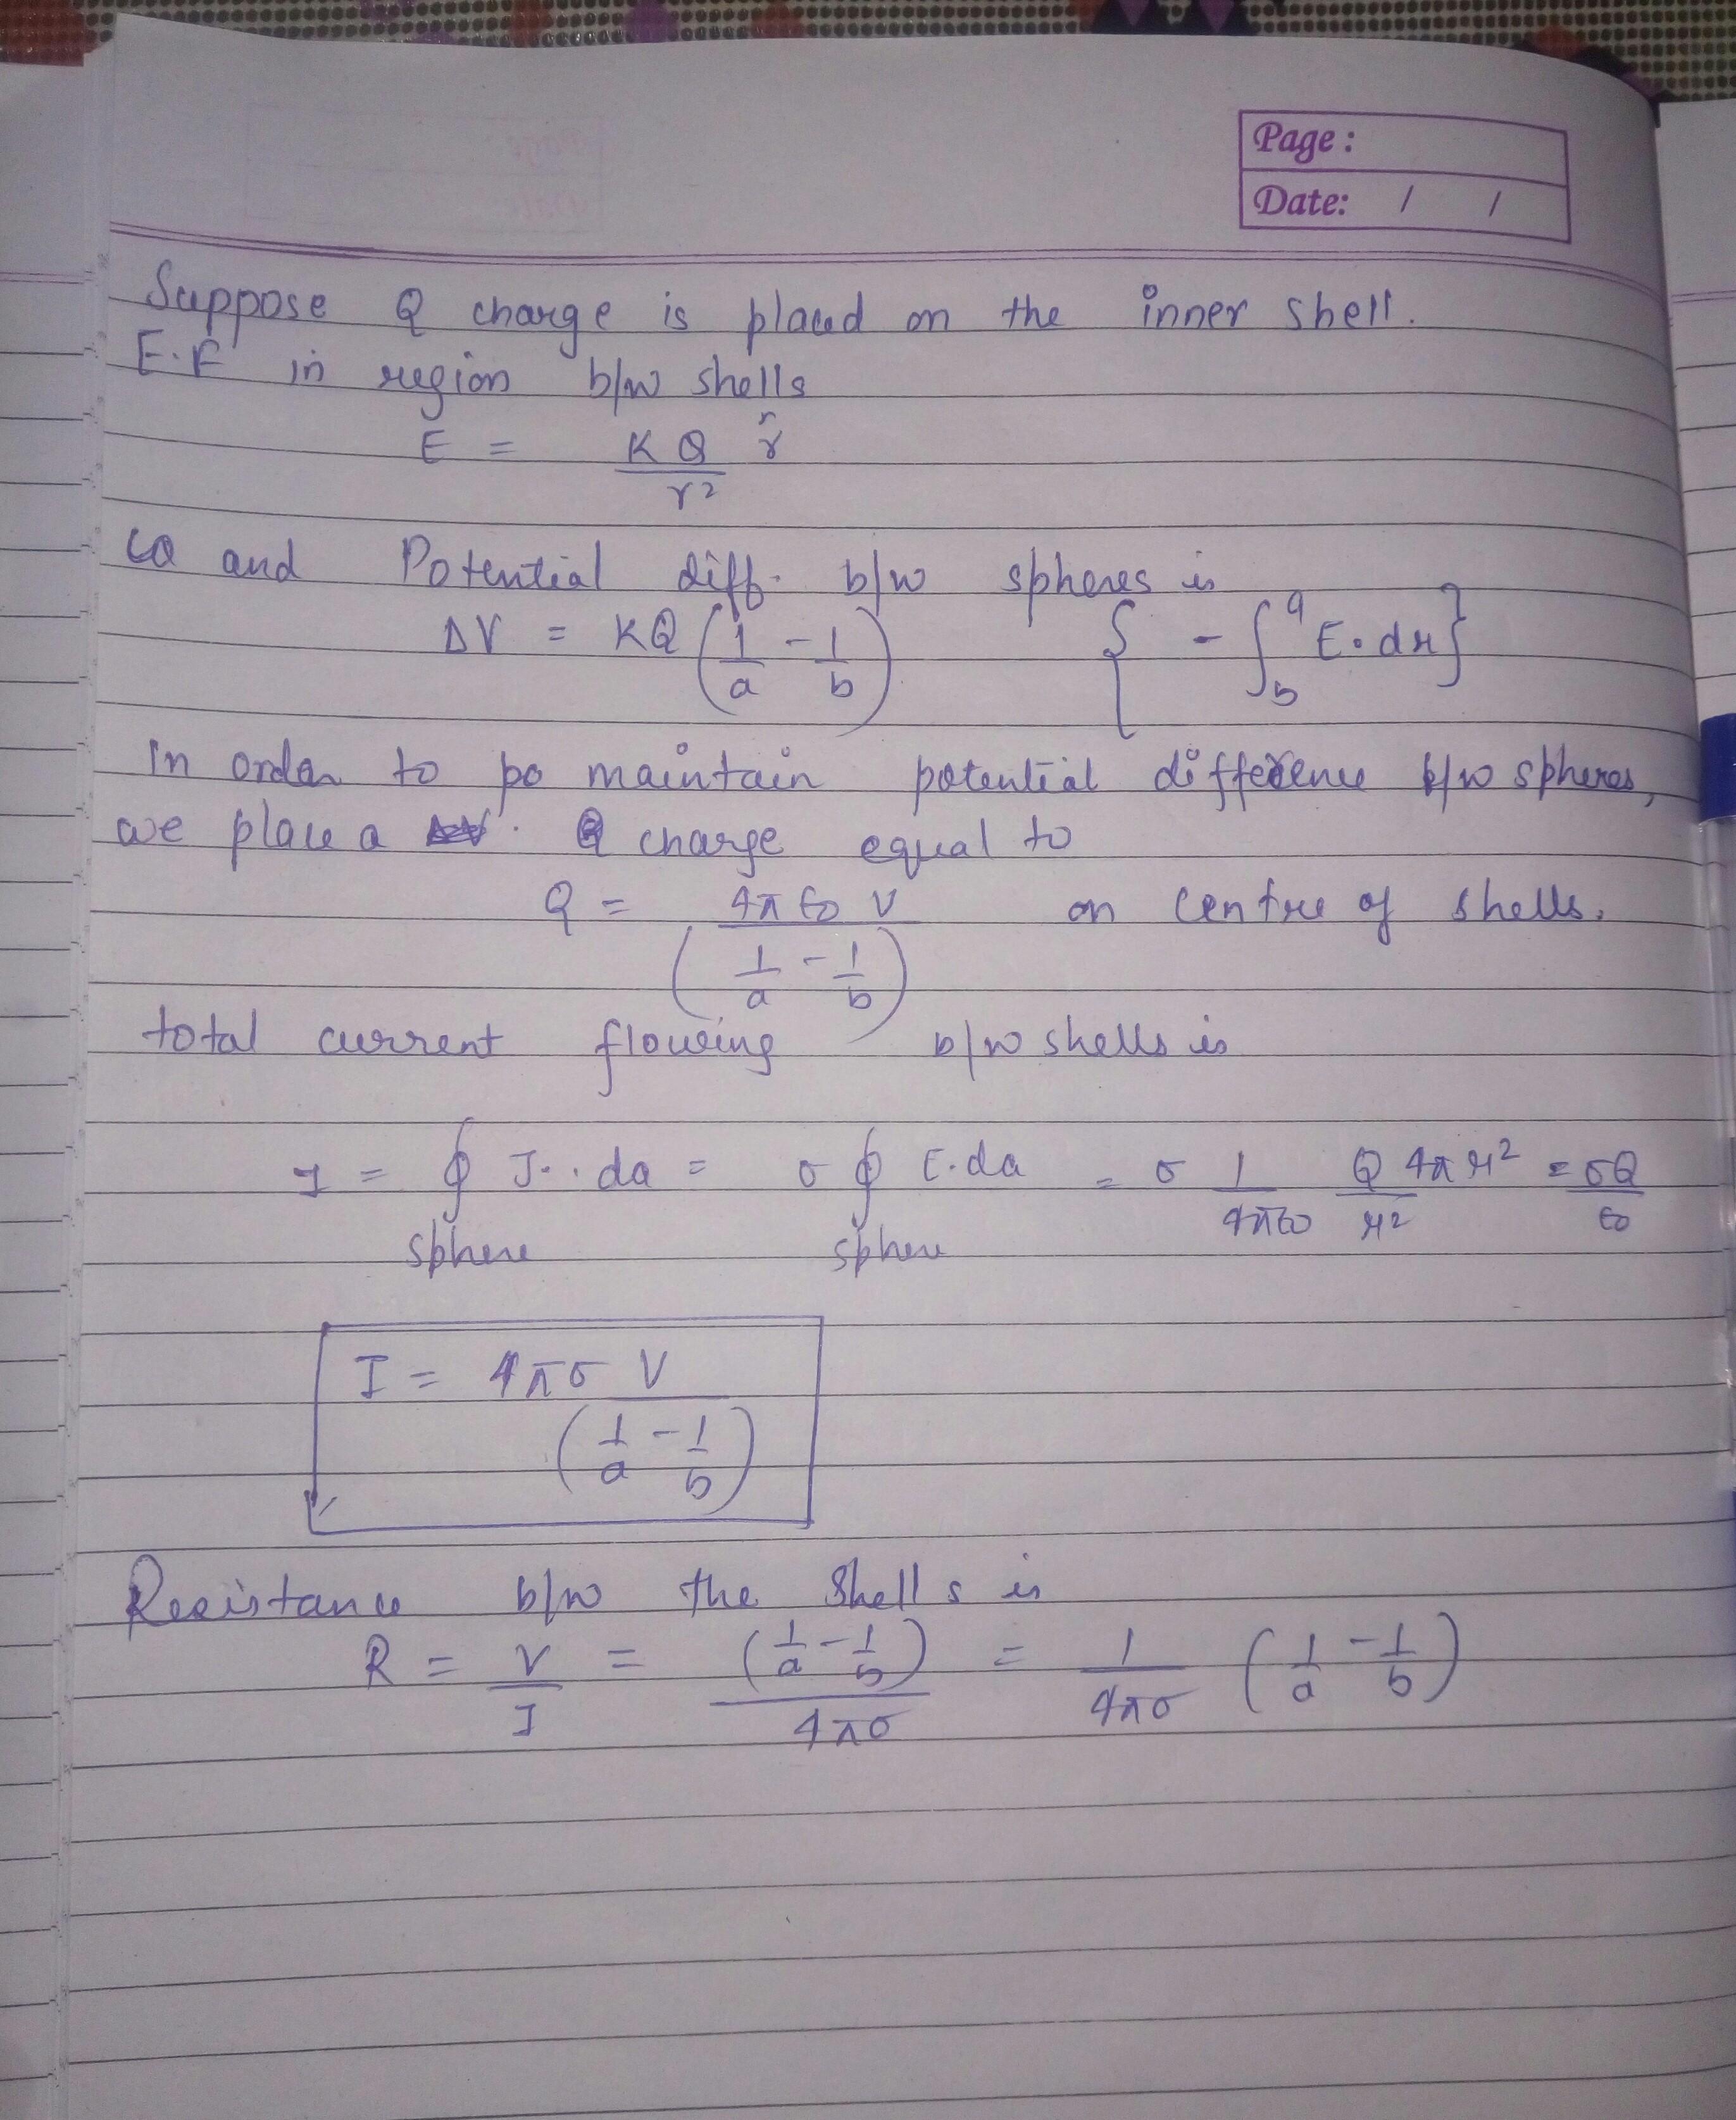 Page :
Date: / /
Suppose Q charge is placed on the inner shell.
E.F in region b/w shells
E = KQ/r² r̂
and Potential diff. b/w spheres is
ΔV = KQ (1/a - 1/b) { - ∫_b^a E.dr}
In order to po maintain potential difference b/w spheres,
we place a Q charge equal to
Q = 4πε0 V / (1/a - 1/b) on centre of shells.
total current flowing b/w shells is
I = ∮ J.da = σ ∮ E.da = σ 1/4πε0 Q/r² 4πr² = σQ/ε0
sphere sphere
I = 4πσ V / (1/a - 1/b)
Resistance b/w the shells is
R = V/I = (1/a - 1/b) / 4πσ = 1/4πσ (1/a - 1/b)